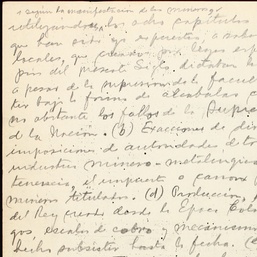 según la manifestación de los mineros y
los ocho capítulos
que han sido ya expuestos a saber
locales, que creados por leyes espe
pios del presente Siglo, dictaban la
a pesar de la supresión de la facul
ter bajo la forma de alcabalas c
no obstante los fallos de la Supre
de la Nación. (b) Exacciones de di
imposiciones de autoridades
industria minero-metalúrgica
tenencia, el impuesto o canon
mineros titulados. (d) Producción,
del Rey creado desde la Época Colo
gos, escalas de cobro y mecanismo
hecho subsistir hasta la fecha. (e)